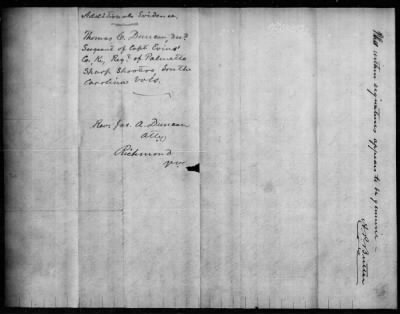 Additional Evidence,
Thomas C. Duncan, decd.
Sergeant of Capt Evins'
Co. K, Regt. of Palmetto
Sharp Shooters, South
Carolina vols.
Rev. Jas. A. Duncan
Atty,
Richmond
The within signatures appear to be genuine –